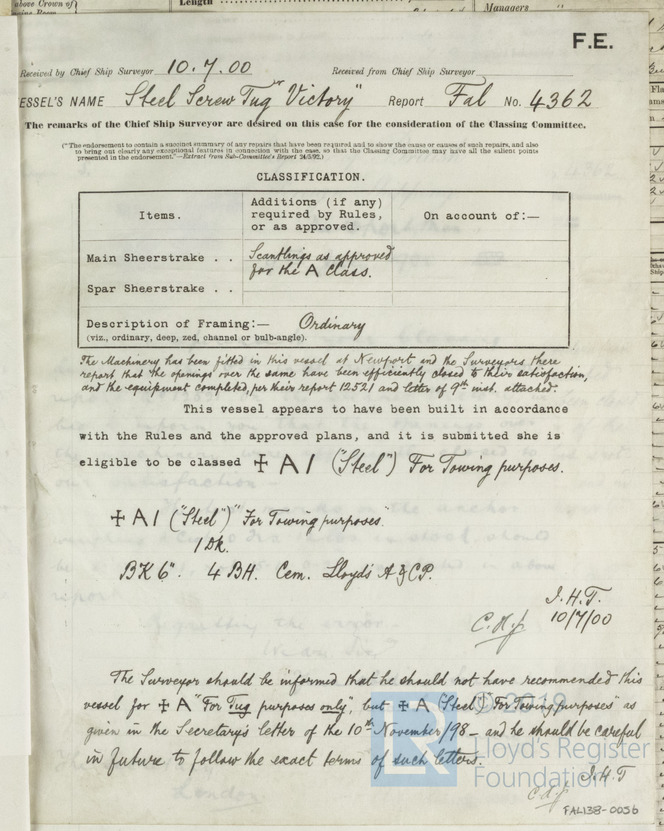 above Crown of
Length
Managers
F.E.
Received by Chief Ship Surveyor 10.7.00 Received from Chief Ship Surveyor
ESSEL'S NAME Steel Screw Tug "Victory" Report Fal No. 4362
The remarks of the Chief Ship Surveyor are desired on this case for the consideration of the Classing Committee.
("The endorsement to contain a succinct summary of any repairs that have been required and to show the cause or causes of such repairs, and also
to bring out clearly any exceptional features in connection with the case, so that the Classing Committee may have all the salient points
presented in the endorsement."—Extract from Sub-Committee's Report 24/5/92.)
CLASSIFICATION.
Items. Additions (if any) required by Rules, or as approved. On account of:—
Main Sheerstrake . . Scantlings as approved
for the A Class.
Spar Sheerstrake . .
Description of Framing:— Ordinary
(viz., ordinary, deep, zed, channel or bulb-angle).
The Machinery has been fitted in this vessel at Newport and the Surveyors there
report that the openings over the same have been efficiently closed to their satisfaction,
and the equipment completed, per their report 12521 and letter of 9th inst. attached.
This vessel appears to have been built in accordance
with the Rules and the approved plans, and it is submitted she is
eligible to be classed ✠ A1 ("Steel") For Towing purposes.
✠ A1 ("Steel") "For Towing purposes"
1 Dk.
BK 6". 4 BH. Cem. Lloyd's A & CP.
J.H.T.
10/7/00
The Surveyor should be informed that he should not have recommended this
vessel for ✠ A "For Tug purposes only", but ✠ A (Steel) "For Towing purposes" as
given in the Secretary's letter of the 10th November/98 – and he should be careful
in future to follow the exact terms of such letters.
J.H.T
Lloyd's Register
Foundation
FAL138-0056